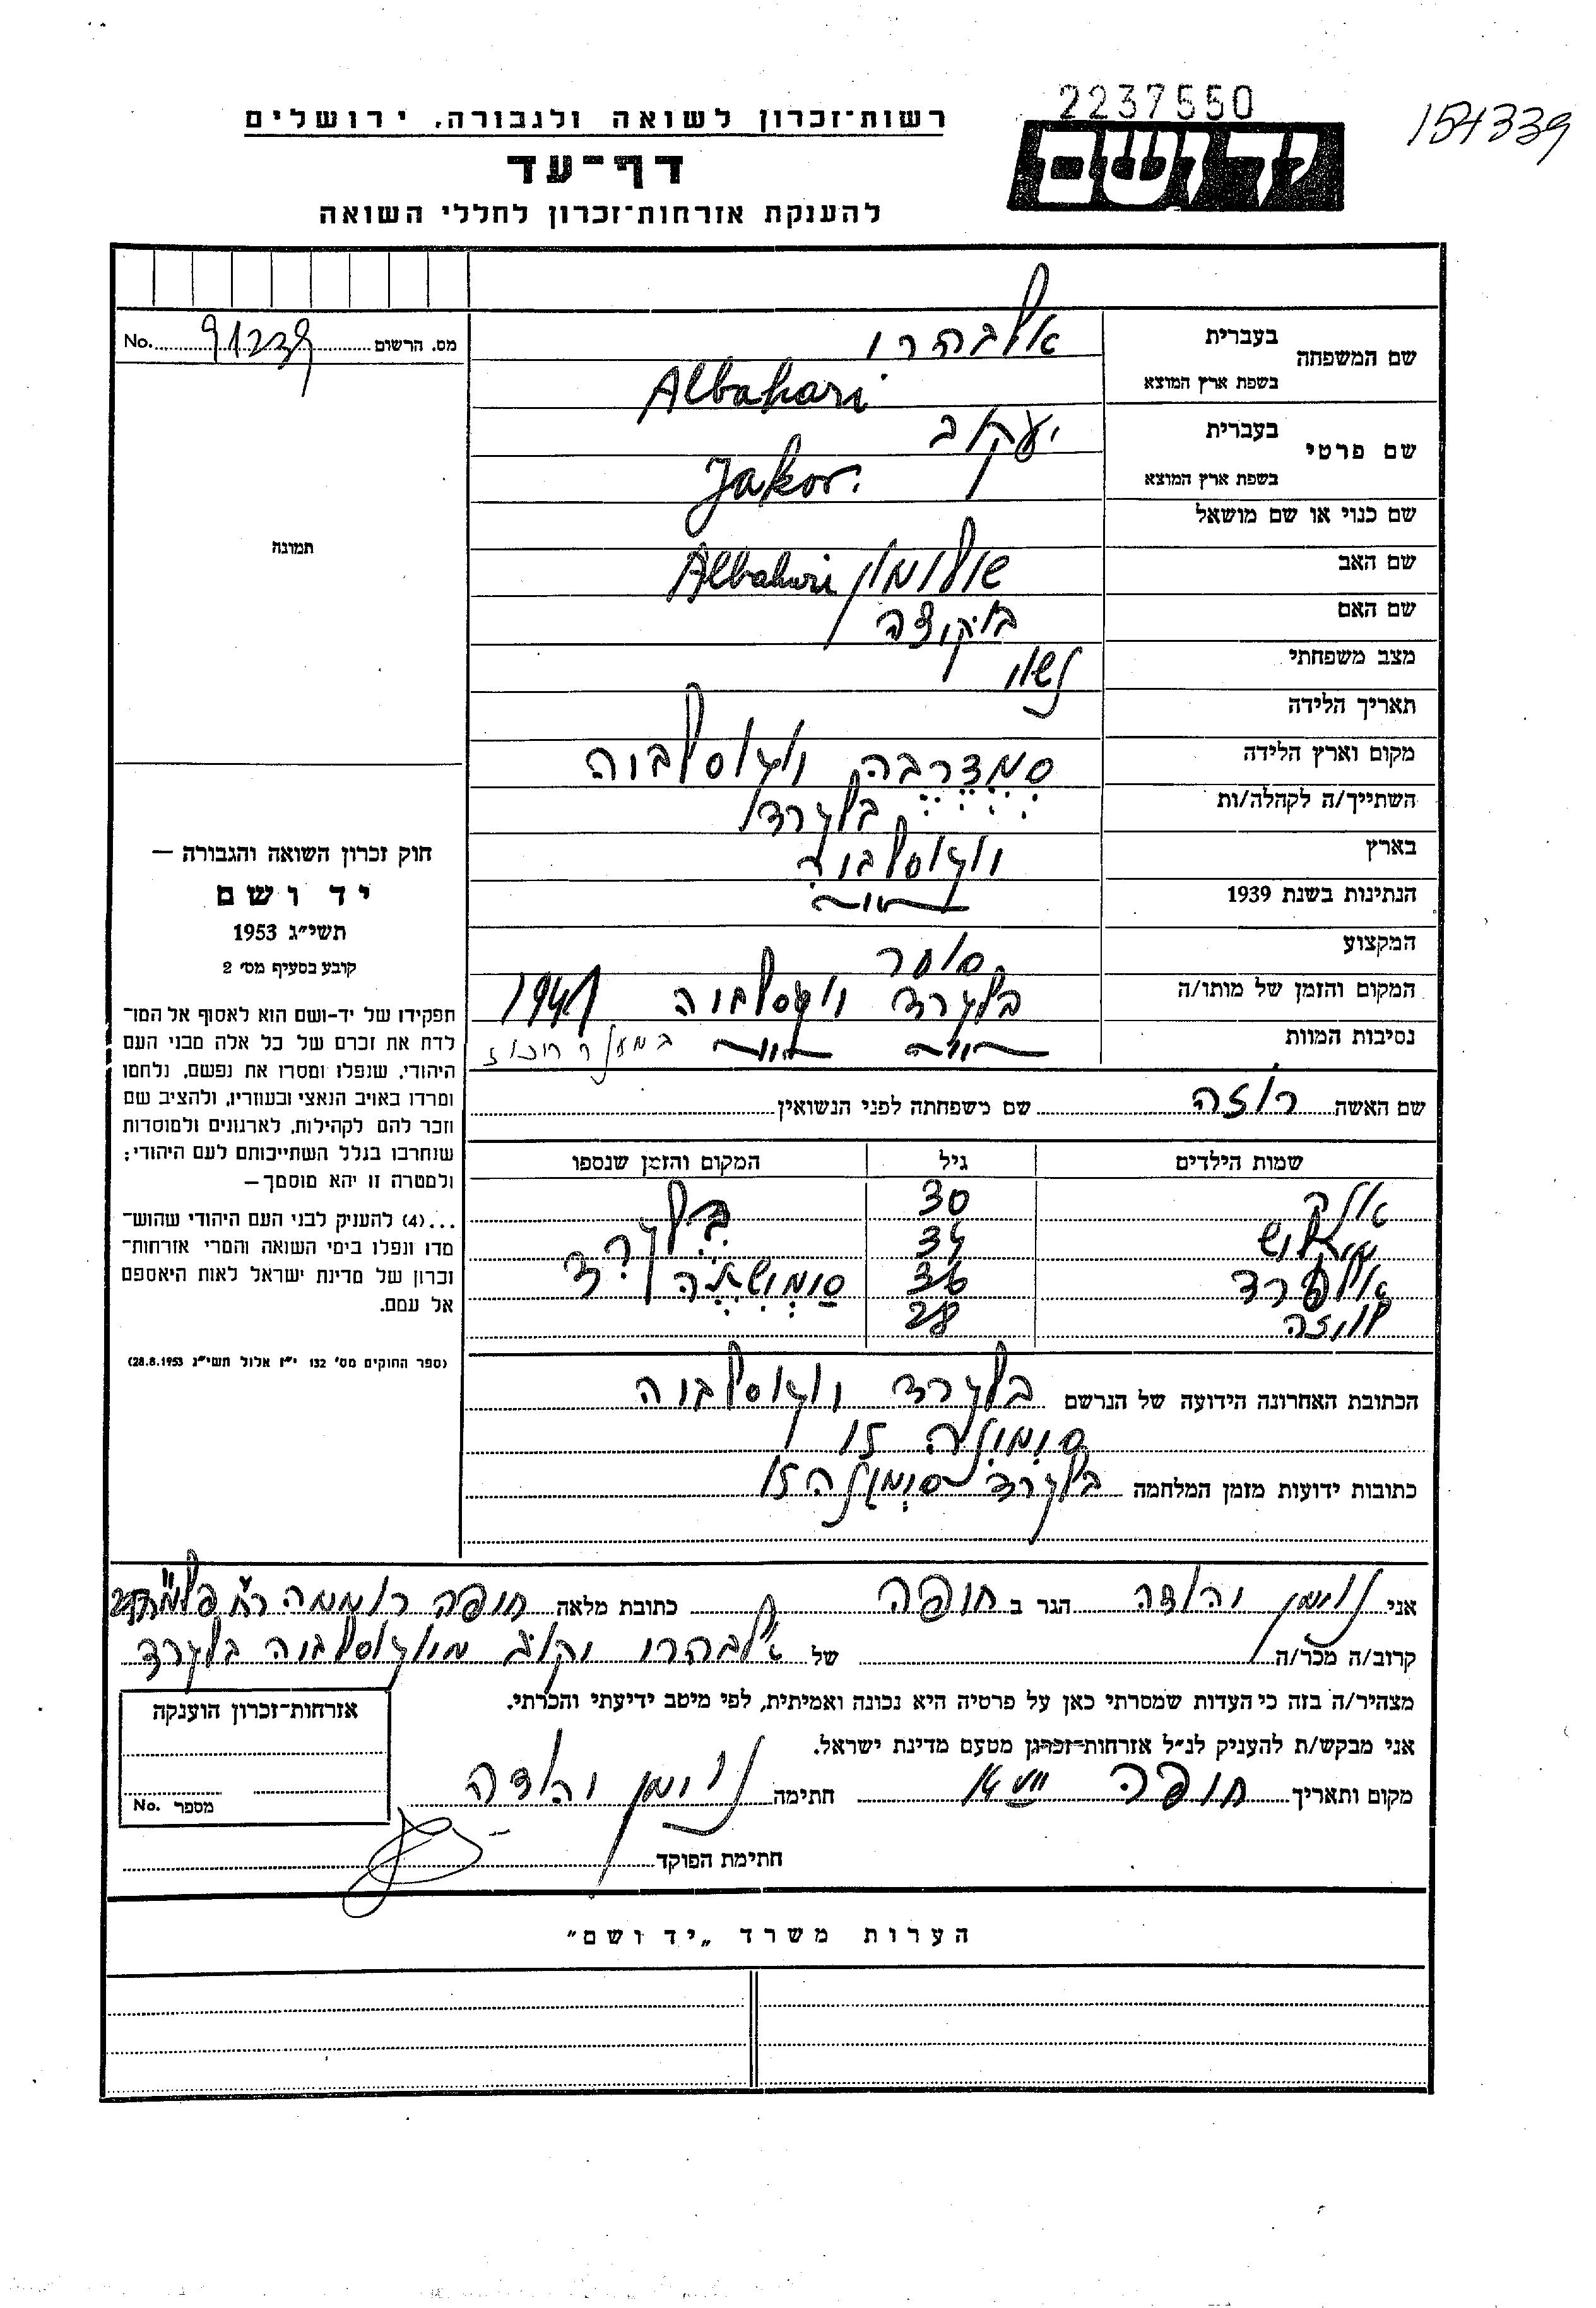 2237550
154339
רשות־זכרון לשואה ולגבורה, ירושלים
יד ושם
דף־עד
להענקת אזרחות־זכרון לחללי השואה
מס. הרשום 91239 No.
תמונה
שם המשפחה
בעברית אלבהרו
בשפת ארץ המוצא Albahari
שם פרטי
בעברית יעקוב
בשפת ארץ המוצא Jakov.
שם כנוי או שם מושאל
שם האב שולומון Albahari
שם האם
מצב משפחתי נשוי
תאריך הלידה
מקום וארץ הלידה יוגוסלבוה
השתייך/ה לקהלה/ות בלגרד
בארץ יוגוסלבוה
הנתינות בשנת 1939
המקצוע סוחר
המקום והזמן של מותו/ה בלגרד יוגוסלבוה 1941
נסיבות המוות במחנה רכוז
שם האשה רוזה שם משפחתה לפני הנשואין
שמות הילדים גיל המקום והזמן שנספו
30
34 בלגרד
אלפרד 36
28
הכתובת האחרונה הידועה של הנרשם בלגרד יוגוסלבוה
סימינה 15
כתובות ידועות מזמן המלחמה בלגרד סימינה 15
חוק זכרון השואה והגבורה —
יד ושם
תשי״ג 1953
קובע בסעיף מס׳ 2
תפקידו של יד-ושם הוא לאסוף אל המו־
לדת את זכרם של כל אלה מבני העם
היהודי, שנפלו ומסרו את נפשם, נלחמו
ומרדו באויב הנאצי ובעוזריו, ולהציב שם
וזכר להם לקהילות, לארגונים ולמוסדות
שנחרבו בגלל השתייכותם לעם היהודי;
ולמטרה זו יהא מוסמך —
...(4) להעניק לבני העם היהודי שהוש־
מדו ונפלו בימי השואה והמרי אזרחות־
זכרון של מדינת ישראל לאות היאספם
אל עמם.
(ספר החוקים מס׳ 132 י״ז אלול תשי״ג 28.8.1953)
אני נוימן יהודה הגר ב חופה כתובת מלאה חופה רוממה
קרוב/ה מכר/ה של אלבהרו יקוב מיוגוסלבוה בלגרד
מצהיר/ה בזה כי העדות שמסרתי כאן על פרטיה היא נכונה ואמיתית, לפי מיטב ידיעתי והכרתי.
אני מבקש/ת להעניק לנ״ל אזרחות־זכרון מטעם מדינת ישראל.
מקום ותאריך חופה חתימה נוימן יהודה
חתימת הפוקד
אזרחות־זכרון הוענקה
מספר No.
הערות משרד „יד ושם״